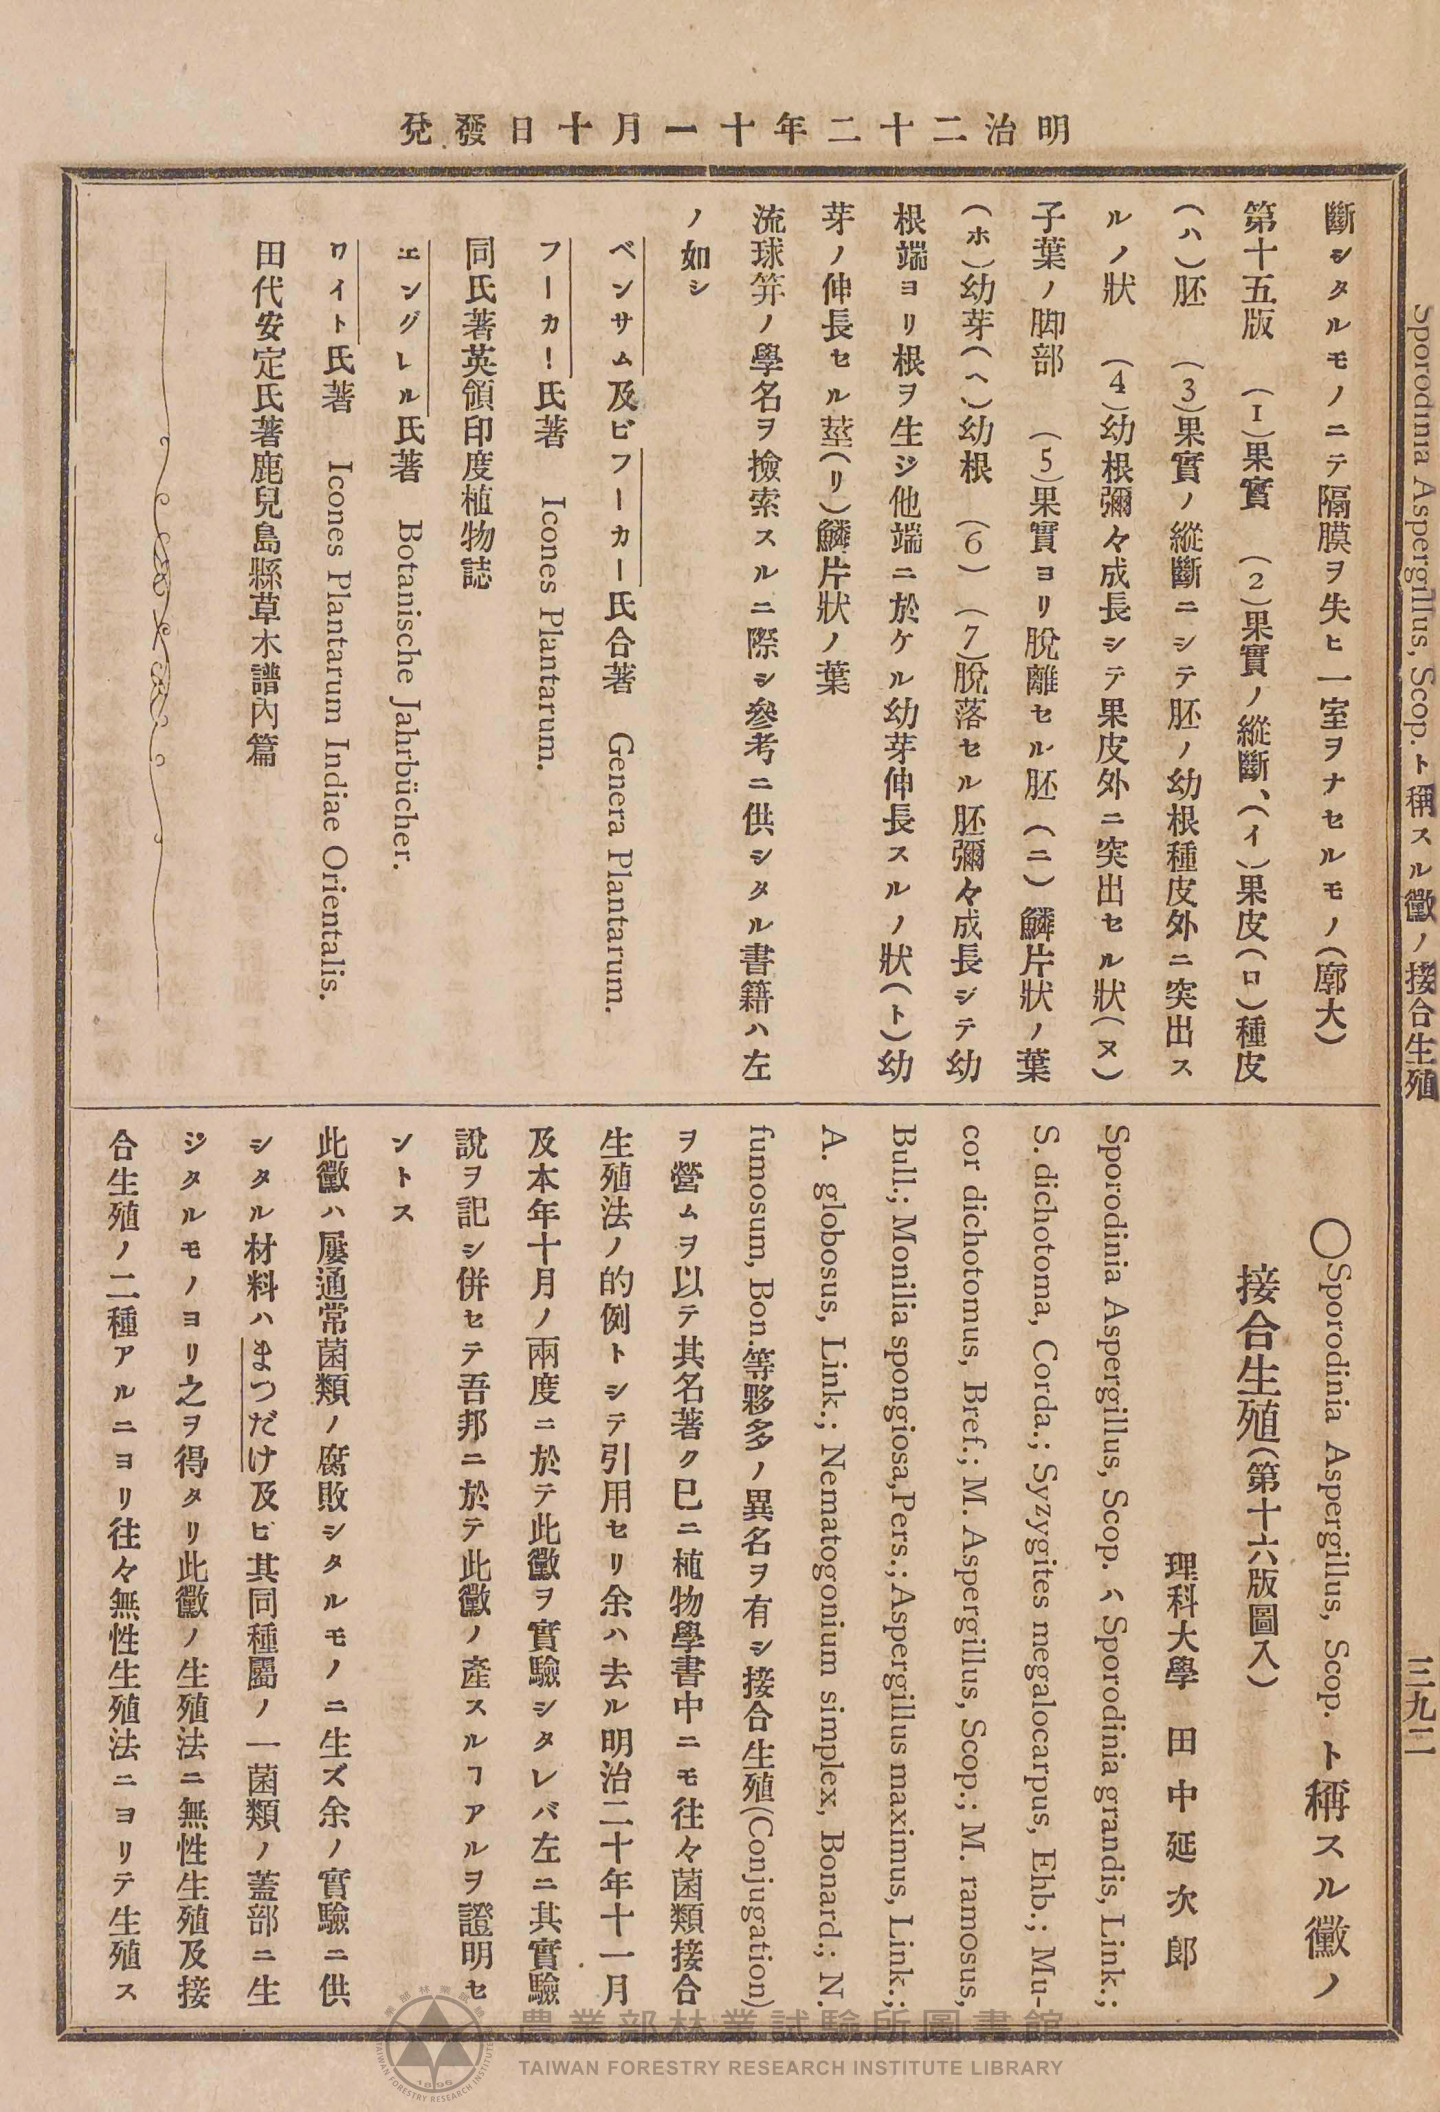 明治二十二年十一月十日發兌
Sporodinia Aspergillus, Scop. ト稱スル黴ノ接合生殖
三九二
斷シタルモノニテ隔膜ヲ失ヒ一室ヲナセルモノ(廓大)
第十五版 (1)果實 (2)果實ノ縱斷、(イ)果皮(ロ)種皮
(ハ)胚 (3)果實ノ縱斷ニシテ胚ノ幼根種皮外ニ突出ス
ルノ狀 (4)幼根彌々成長シテ果皮外ニ突出セル狀(ヌ)
子葉ノ脚部 (5)果實ヨリ脫離セル胚(ニ)鱗片狀ノ葉
(ホ)幼芽(ヘ)幼根 (6) (7)脫落セル胚彌々成長シテ幼
根端ヨリ根ヲ生ジ他端ニ於ケル幼芽伸長スルノ狀(ト)幼
芽ノ伸長セル莖(リ)鱗片狀ノ葉
流球筓ノ學名ヲ撿索スルニ際シ參考ニ供シタル書籍ハ左
ノ如シ
ベンサム及ビフーカー氏合著 Genera Plantarum.
フーカー氏著 Icones Plantarum.
同氏著英領印度植物誌
エングレル氏著 Botanische Jahrbücher.
ワイト氏著 Icones Plantarum Indiae Orientalis.
田代安定氏著鹿兒島縣草木譜內篇
○Sporodinia Aspergillus, Scop. ト稱スル黴ノ
接合生殖(第十六版圖入)
理科大學 田中延次郎
Sporodinia Aspergillus, Scop. ハ Sporodinia grandis, Link.;
S. dichotoma, Corda.; Syzygites megalocarpus, Ehb.; Mu-
cor dichotomus, Bref.; M. Aspergillus, Scop.; M. ramosus,
Bull.; Monilia spongiosa, Pers.; Aspergillus maximus, Link.;
A. globosus, Link.; Nematogonium simplex, Bonard.; N.
fumosum, Bon. 等夥多ノ異名ヲ有シ接合生殖(Conjugation)
ヲ營ムヲ以テ其名著ク已ニ植物學書中ニモ往々菌類接合
生殖法ノ的例トシテ引用セリ余ハ去ル明治二十年十一月
及本年十月ノ兩度ニ於テ此黴ヲ實驗シタレバ左ニ其實驗
說ヲ記シ併セテ吾邦ニ於テ此黴ノ產スルヿアルヲ證明セ
ントス
此黴ハ屢通常菌類ノ腐敗シタルモノニ生ズ余ノ實驗ニ供
シタル材料ハまつだけ及ビ其同種屬ノ一菌類ノ蓋部ニ生
ジタルモノヨリ之ヲ得タリ此黴ノ生殖法ニ無性生殖及接
合生殖ノ二種アルニヨリ往々無性生殖法ニヨリテ生殖ス
農業部林業試驗所圖書館
TAIWAN FORESTRY RESEARCH INSTITUTE LIBRARY
TAIWAN FORESTRY RESEARCH INSTITUTE
1896